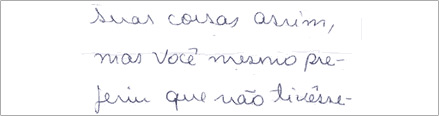 suas coisas assim,
mas você mesmo pre-
feriu que não tivésse-